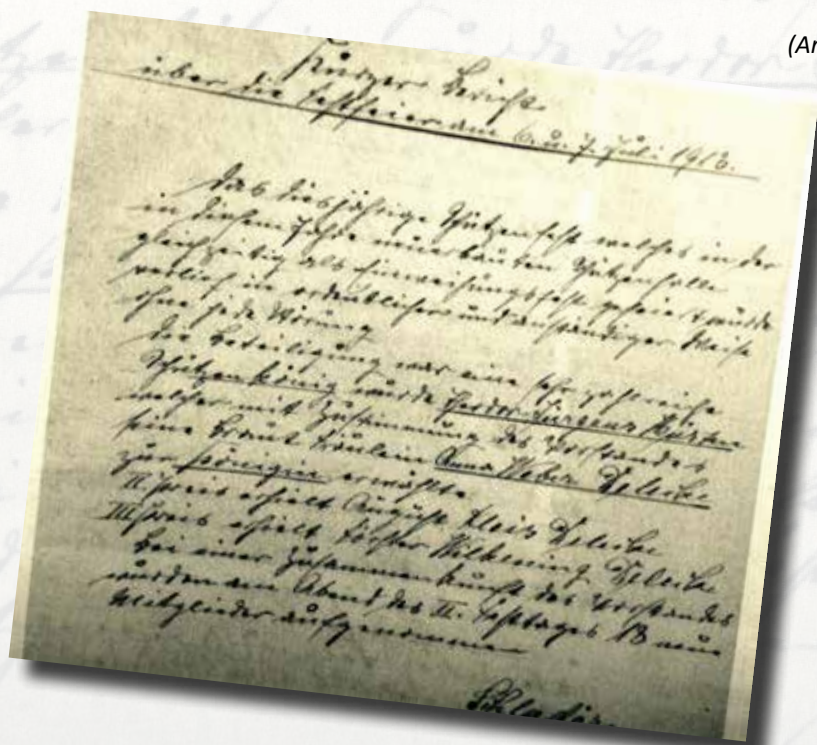 (Ar
Kurzer Bericht
über die Festfeier am 6. u. 7. Juli 1913.
Das diesjährige Schützenfest welches in der
in diesem Jahre neuerbauten Schützenhalle
gleichzeitig als Einweihungsfest gefeiert wurde
verlief in ordentlicher und anständiger Weise
ohne jede Störung
Die Beteiligung war eine sehr zahlreiche
Schützenkönig wurde
welcher mit Zustimmung des Vorstandes
seine Braut Fräulein Anna Weber
zur Königin erwählte
II Preis erhielt August
III Preis erhielt Förster
Bei einer Zusammenkunft des Vorstandes
wurden am Abend des II. Festtages 18 neue
Mitglieder aufgenommen